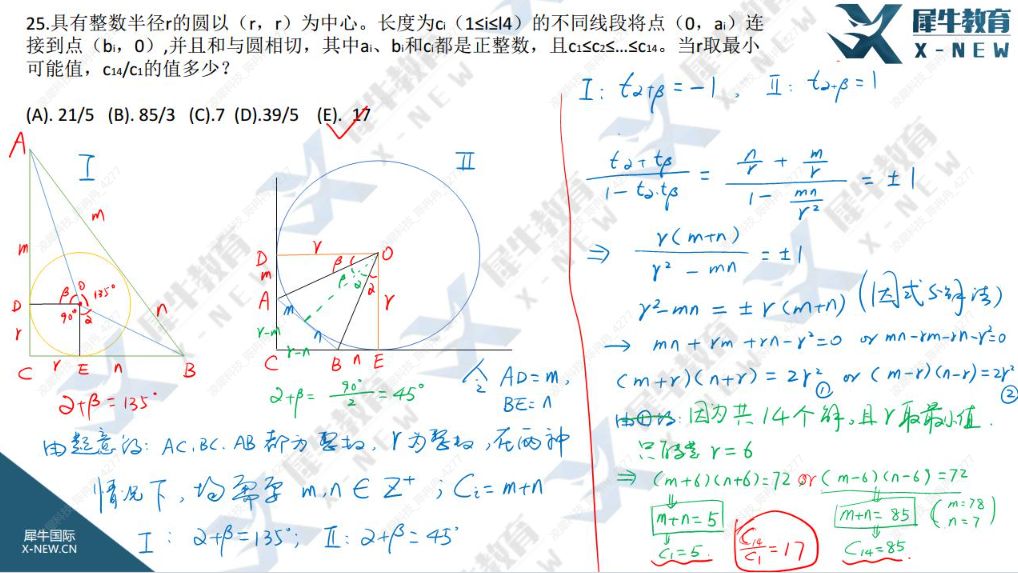 25.具有整数半径r的圆以（r，r）为中心。长度为cᵢ（1≤i≤l4）的不同线段将点（0，aᵢ）连
接到点（bᵢ，0）,并且和与圆相切，其中aᵢ、bᵢ和cᵢ都是正整数，且c₁≤c₂≤...≤c₁₄。当r取最小
可能值，c₁₄/c₁的值多少？
(A). 21/5 (B). 85/3 (C).7 (D).39/5 (E). 17
犀牛教育
X-NEW
A
I
m
m
D
β
O
135°
90°
2
n
r
C
r
E
n
B
2+β=135°
II
D
r
O
β
2
m
A
m
r
r-m
n
r-n
C
B
n
E
2+β= 90°/2 =45°
令 AD=m,
BE=n
由题意的: AC,BC,AB都为整数, r为整数,在两种
情况下, 均需要 m,n∈Z⁺ ; Cᵢ=m+n
I : 2+β=135°; II: 2+β=45°
I: t2+β=-1, II: t2+β=1
t2+tβ / 1-t2·tβ = n/r + m/r / 1 - mn/r² = ±1
⇒ r(m+n) / r²-mn = ±1
r²-mn = ±r(m+n) (因式分解法)
→ mn+rm+rn-r²=0 or mn-rm-rn-r²=0
(m+r)(n+r)=2r² ① or (m-r)(n-r)=2r² ②
因为共14个解,且r取最小值.
只能是 r=6
⇒ (m+6)(n+6)=72 or (m-6)(n-6)=72
m+n=5
m+n=85
(m=78
n=7)
C₁=5.
C₁₄/C₁=17
C₁₄=85.
犀牛国际
X-NEW.CN